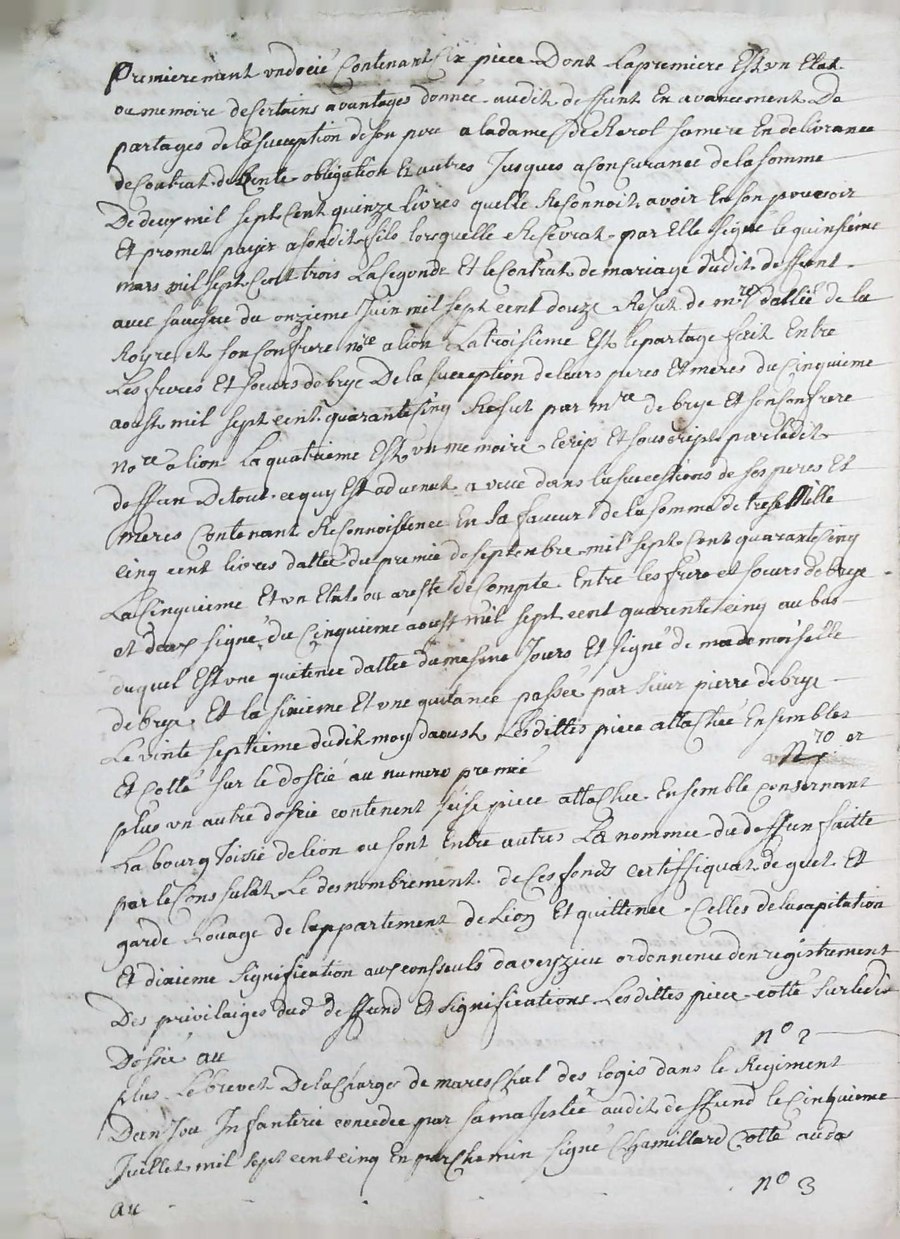 premierement un docié contenant six piece Dont La premiere Est un Etat
ou memoire de sertains avantages donnée audit deffunt En avancement De
partages de la sucception de son pere a la dame sa mere En delivrance
de Contrat de Rente obligation Et autres Jusques a concurance de la somme
De deux mil sept Cent quinze livres quelle Reconnoit avoir En son pouvoir
Et promet payer a son dit fils lorsquelle Resevrat par Elle signé le quinsieme
mars mil sept cent trois La segonde Et le Contrat de mariage dudit deffunt
avec du onzieme Juin mil sept cent douze Resut de mre dallié de la
Royre et son Confrere nore a lion La troisieme Est le partage fait Entre
Les freres Et soeurs de brye De la sucception de leurs peres Et meres du Cinquieme
aoust mil sept cent quarantesinq Resut par mre de brye Et son Confrere
nore a lion La quatrieme Est un memoire Ecrip Et souscript par ledit
deffun De tout ce quy Est advenut a dans la successions de ses peres Et
meres Contenant Reconnoissence En sa faveur de la somme de trese Mille
cinq cent livres dattée du premie de septembre mil sept Cent quarante sinq
La Cinquieme Et un Etat ou areste de Compte Entre les frere et soeurs de brye
et deux signé du Cinquieme aoust mil sept cent quarente cinq au bas
duquel Est une quitence dattée du mesme Jours Et signé de mademoiselle
de brye Et la sixieme Et une quitance passée par sieur pierre de brye
Le vinte septieme dudit moy daoust Lesdittes piece attachée Ensembles
Et cotté sur le dossié au numero premié
plus un autre dossie contenent seise piece attachée Ensemble consernant
La bourgoisie de lion ou sont Entre autres La nommée du deffun faitte
par le Consulat Le desnombrement de Ces fonds certiffiquat de guet Et
garde Louage de lappartement de Lion Et quittence Celles de la capitation
Et dixieme signification aux consseuls daveyzieu ordonnence denregistrement
Des privilaiges dud deffund Et significations Lesdittes piece cotté sur le dis
Dossié au n° 2
plus Le brevet De la Charges de mareschal des logis dans le Regiment
Danjou Infanterie concedée par sa majestée audit deffund le Cinquieme
Juillet mil sept cent cinq En parchemin signé Chamillard Cotté au dos
au n° 3